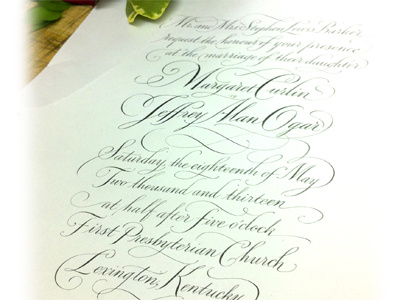 Mr. and Mrs. Stephen Lewis Barker
request the honour of your presence
at the marriage of their daughter
Margaret Curtin
Jeffrey Alan Ogar
Saturday, the eighteenth of May
Two thousand and thirteen
at half after five o'clock
First Presbyterian Church
Lexington, Kentucky